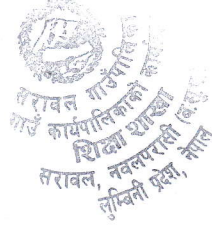 सरावल गाउँपालिका
गाउँ कार्यपालिकाको कार्यालय
शिक्षा शाखा
सरावल, नवलपरासी
लुम्बिनी प्रदेश, नेपाल